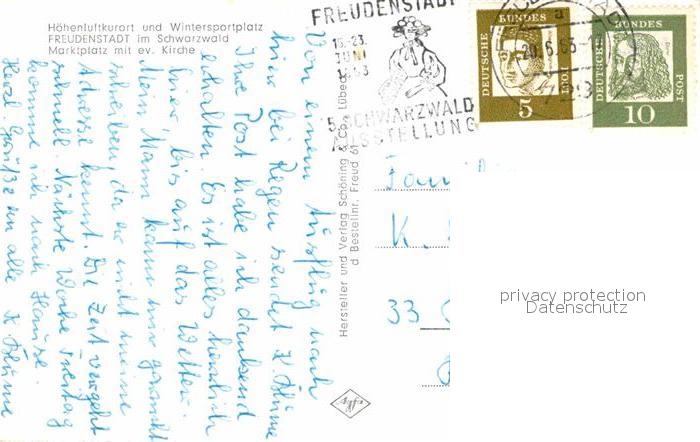 Höhenluftkurort und Wintersportplatz
FREUDENSTADT im Schwarzwald
Marktplatz mit ev. Kirche
Von einem Ausflug nach
hier bei Regen sendet K. Blume
Ihre Post habe ich dankend
erhalten. Es ist alles herrlich
hier, bis auf das Wetter.
Mein Mann kann mir garnicht
schreiben, da er nicht meine
Adresse kennt. Die Zeit vergeht
schnell. Nächste Woche Freitag
komme ich nach Hause.
Herzl. Grüße an alle K. Blume
Hersteller und Verlag Schöning & Co., Lübeck
Bestellnr. Freud 61
Agfa
FREUDENSTADT
15.-23.
JUNI
1963
5. SCHWARZWALD
AUSSTELLUNG
20.6.63
DEUTSCHE BUNDES POST
5
DEUTSCHE BUNDES POST
10
K.
33
privacy protection
Datenschutz